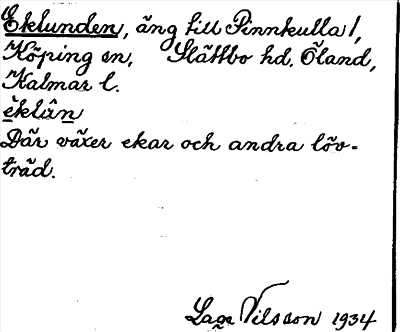 Eklunden, äng till Pinnkulla 1,
Köping sn, Slättbo hd. Öland,
Kalmar l.
èklûn
Där växer ekar och andra löv-
träd.
Lage Nilsson 1934